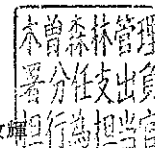 木曽森林管理
署分任支出負
担行為担当官
輝